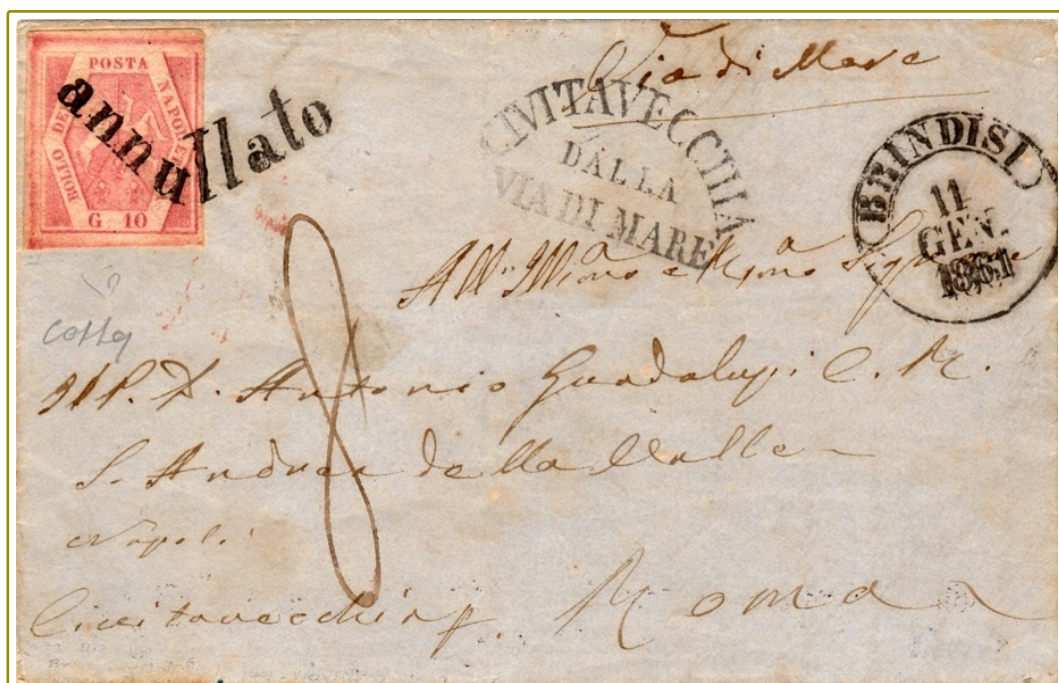 POSTA NAPOLETANA
BOLLO DELLA
G. 10
annullato
Via di Mare
CIVITAVECCHIA
DALLA
VIA DI MARE
BRINDISI
11
GEN.
1861
All'Illmo e Rmo Signore
Il P. D. Antonio Guadalupi C. R.
S. Andrea della Valle
Napoli
Civitavecchia p. Roma
8